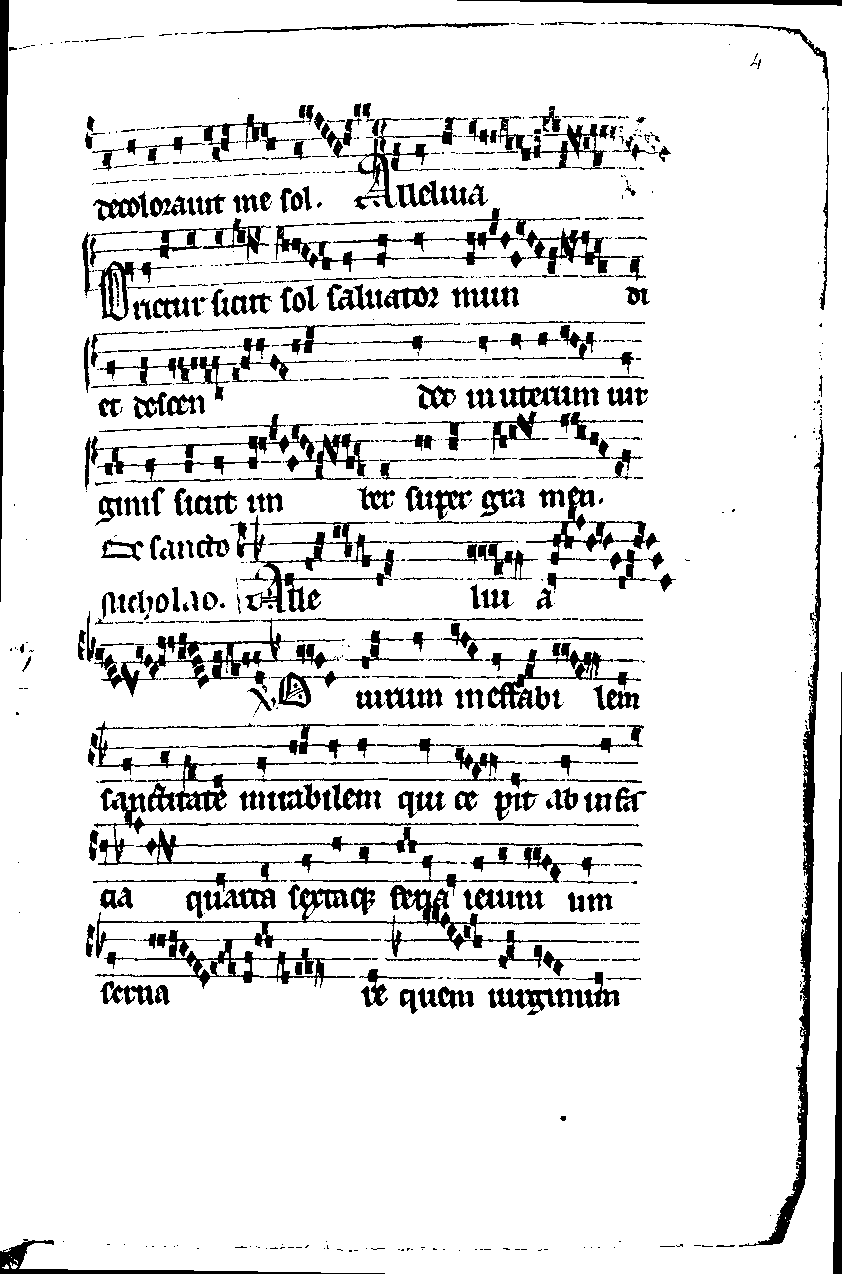 4
decolorauit me sol. Alleluia
Orietur sicut sol saluator mun di
et descen det in uterum uir
ginis sicut im ber super gra men.
De sancto
nicholao. Alle lui a
V. O uirum ineffabi lem
sanctitate mirabilem qui ce pit ab infā
cia quarta sextaqꝫ feria ieiuni um
serua re quem uirginum